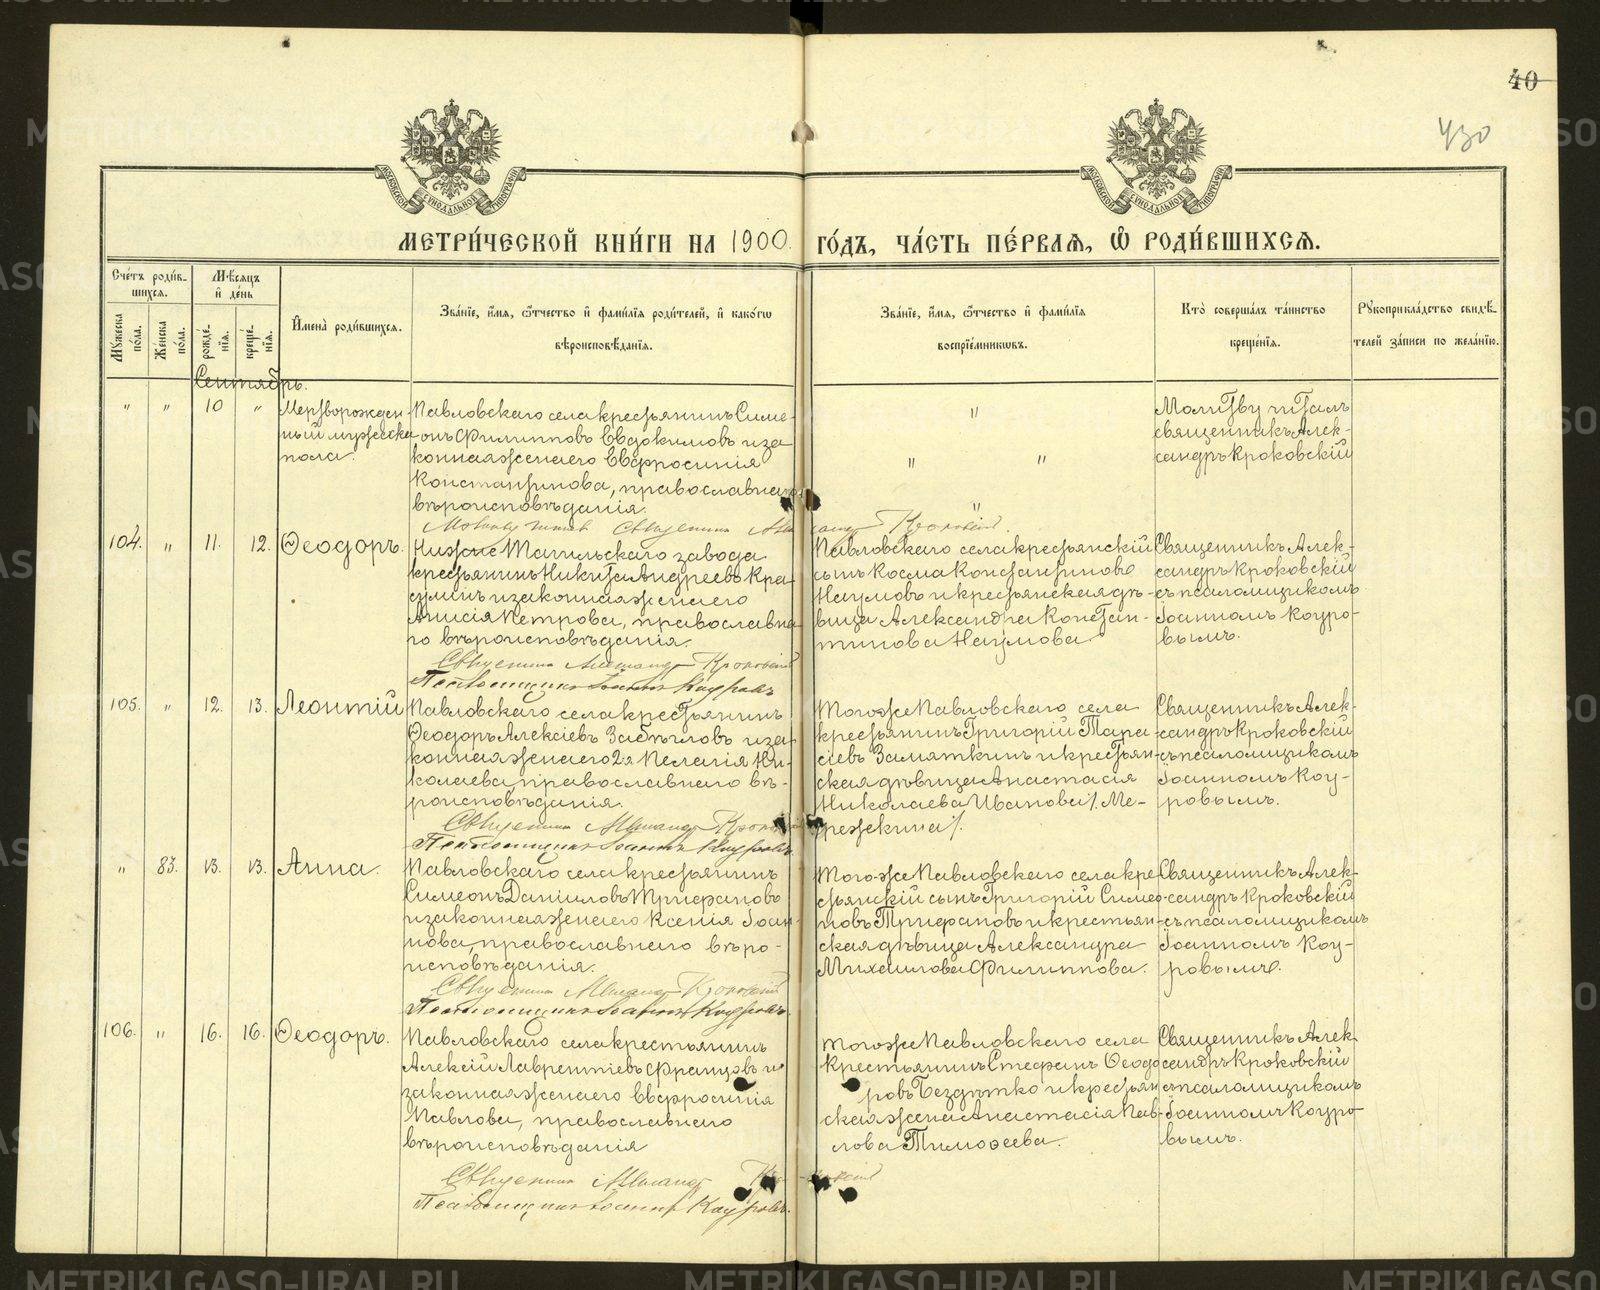 40
430
МОСКОВСКОЙ СУНОДАЛЬНОЙ ТИПОГРАФІИ
МОСКОВСКОЙ СУНОДАЛЬНОЙ ТИПОГРАФІИ
МЕТРИ́ЧЕСКОЙ КНИ́ГИ НА 1900. ГО́ДЪ, ЧА́СТЬ ПЕ́РВАѦ, Ѽ РОДИ́ВШИХСѦ.
Сче́тъ роди́в-
шихсѧ.
Мѣ́сѧцъ
и҆ де́нь
Мꙋ́жеска
по́ла.
Же́нска
по́ла.
рожде́-
нїѧ.
креще́-
нїѧ.
И҆мена̀ роди́вшихсѧ.
Зва́нїе, и҆́мѧ, ѻ҆́тчество и҆ фами́лїѧ роди́телей, и҆ како́гѡ
вѣроисповѣ́данїѧ.
Зва́нїе, и҆́мѧ, ѻ҆́тчество и҆ фами́лїѧ
воспрїе́мникѡвъ.
Кто̀ соверша́лъ та́инство
креще́нїѧ.
Рꙋкоприкла́дство свидѣ́-
телей за́писи по жела́нїю.
Сентябрь.
" " 10 "
Мертворожден-
ный мужеска
пола.
Павловскаго села крестьянинъ Симе-
онъ Филипповъ Евдокимовъ и за
конная жена его Евфросинія
Константинова, православнаго
вѣроисповѣданія.
"
" "
"
Молитву читалъ
священникъ Алек-
сандръ Кроковскій
Молитву читалъ Священникъ Александръ Кроковскій.
104. " 11. 12. Ѳеодоръ.
Нижне Тагильскаго завода
крестьянинъ Никита Андреевъ Кра-
сулинъ и законная жена его
Анисія Петрова, православна-
го вѣроисповѣданія.
Павловскаго села крестьянскій
сынъ Косма Константиновъ
Наумовъ и крестьянская дѣ-
вица Александра Констан-
тинова Наумова
Священникъ Алек-
сандръ Кроковскій
съ псаломщикомъ
Іоанномъ Коуро-
вымъ.
Священникъ Александръ Кроковскій
Псаломщикъ Іоаннъ Коуровъ
105. " 12. 13. Леонтій
Павловскаго села крестьянинъ
Ѳеодоръ Алексіевъ Засыпловъ и за
конная жена его 2я Пелагія Ни-
колаева, православнаго вѣ-
роисповѣданія.
Тогоже Павловскаго села
крестьянинъ Григорій Тара
сіевъ Замяткинъ и крестьян-
ская дѣвица Анастасія
Николаева Иванова /. Ме-
режкина /.
Священникъ Алек-
сандръ Кроковскій
съ псаломщикомъ
Іоанномъ Коу-
ровымъ.
Священникъ Александръ Кроковскій
Псаломщикъ Іоаннъ Коуровъ
" 83. 13. 13. Анна.
Павловскаго села крестьянинъ
Симеонъ Даниловъ Трифановъ
и законная жена его Ксенія Іоан-
нова, православнаго вѣро-
исповѣданія.
Тогоже Павловскаго села кре
стьянскій сынъ Григорій Симео-
новъ Трифановъ и крестьян-
ская дѣвица Александра
Михаилова Филиппова.
Священникъ Алек-
сандръ Кроковскій
съ псаломщикомъ
Іоанномъ Коу-
ровымъ.
Священникъ Александръ Кроковскій
Псаломщикъ Іоаннъ Коуровъ.
106. " 16. 16. Ѳеодоръ.
Павловскаго села крестьянинъ
Алексій Лаврентіевъ Францовъ и
законная жена его Евфросинія
Павлова, православнаго
вѣроисповѣданія
Тогоже Павловскаго села
крестьянинъ Стефанъ Ѳеодо
ровъ Бездѣтко и крестьян
ская жена Анастасія Пав-
лова Тимоѳеева.
Священникъ Алек-
сандръ Кроковскій
съ псаломщикомъ
Іоанномъ Коуро-
вымъ.
Священникъ Александръ Кроковскій
Псаломщикъ Іоаннъ Коуровъ.
METRIKI.GASO-URAL.RU